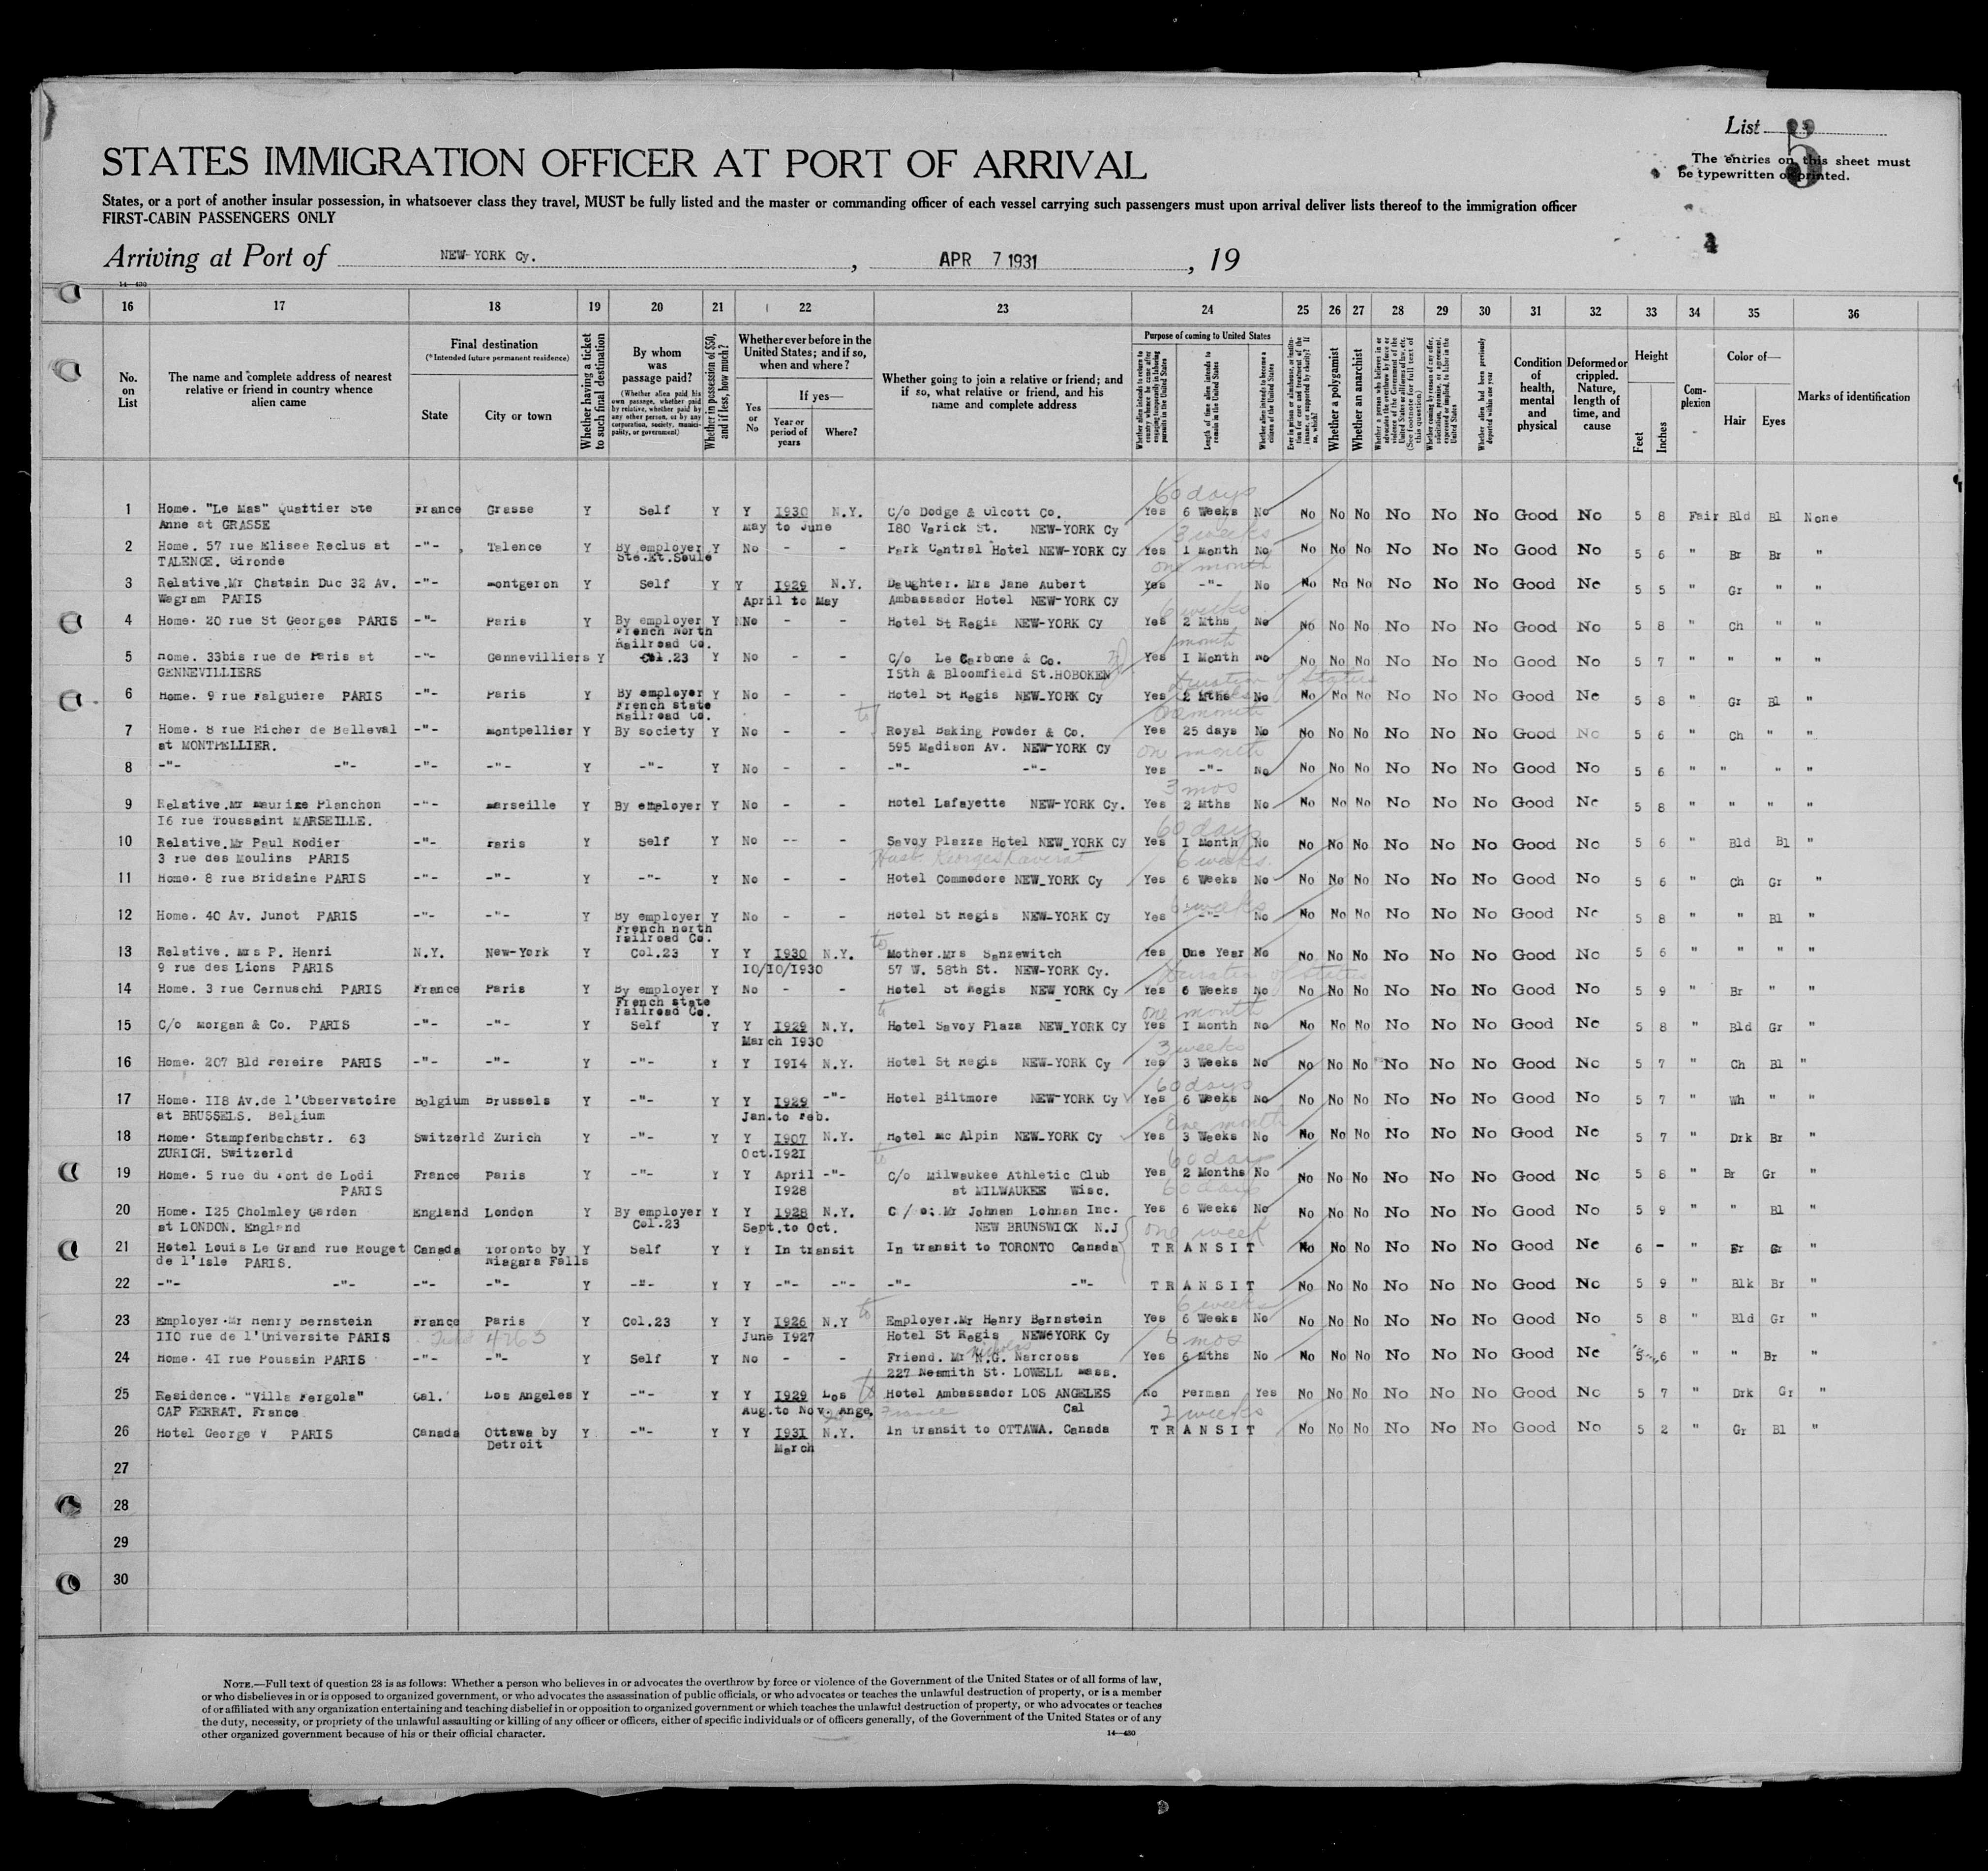 List 5
STATES IMMIGRATION OFFICER AT PORT OF ARRIVAL
The entries on this sheet must
be typewritten or printed.
States, or a port of another insular possession, in whatsoever class they travel, MUST be fully listed and the master or commanding officer of each vessel carrying such passengers must upon arrival deliver lists thereof to the immigration officer
FIRST-CABIN PASSENGERS ONLY
4
Arriving at Port of NEW-YORK Cy. , APR 7 1931 , 19
14—430
16 17 18 19 20 21 22 23 24 25 26 27 28 29 30 31 32 33 34 35 36
No. on List
The name and complete address of nearest relative or friend in country whence alien came
Final destination
(*Intended future permanent residence)
State
City or town
Whether having a ticket to such final destination
By whom was passage paid?
(Whether alien paid his own passage, whether paid by relative, whether paid by any other person, or by any corporation, society, municipality, or government)
Whether in possession of $50, and if less, how much?
Whether ever before in the United States; and if so, when and where?
Yes or No
If yes—
Year or period of years
Where?
Whether going to join a relative or friend; and if so, what relative or friend, and his name and complete address
Purpose of coming to United States
Whether alien intends to return to country whence he came after engaging temporarily in laboring pursuits in the United States
Length of time alien intends to remain in the United States
Whether alien intends to become a citizen of the United States
Ever in prison or almshouse, or institution for care and treatment of the insane, or supported by charity? If so, which?
Whether a polygamist
Whether an anarchist
Whether a person who believes in or advocates the overthrow by force or violence of the Government of the United States or all forms of law, etc. (See footnote for full text of this question)
Whether coming by reason of any offer, solicitation, promise, or agreement, expressed or implied, to labor in the United States
Whether alien had been previously deported within one year
Condition of health, mental and physical
Deformed or crippled. Nature, length of time, and cause
Height
Feet
Inches
Complexion
Color of—
Hair
Eyes
Marks of identification
60 days
1 Home. "Le Mas" Quattier Ste France Grasse Y Self Y Y 1930 N.Y. C/o Dodge & Olcott Co. Yes 6 Weeks No No No No No No No Good No 5 8 Fair Bld Bl None
Anne at GRASSE May to June 180 Varick St. NEW-YORK Cy
3 weeks
2 Home. 57 rue Elisee Reclus at -"- Talence Y By employer Y No - - Park Central Hotel NEW-YORK Cy Yes 1 Month No No No No No No No Good No 5 6 " Br Br "
TALENCE. Gironde Ste.Et.Soule
one month
3 Relative.Mr Chatain Duc 32 Av. -"- Montgeron Y Self Y Y 1929 N.Y. Daughter. Mrs Jane Aubert Yes -"- No No No No No No No Good No 5 5 " Gr " "
Wagram PARIS April to May Ambassador Hotel NEW-YORK Cy
6 weeks
4 Home. 20 rue St Georges PARIS -"- Paris Y By employer Y No - - Hotel St Regis NEW-YORK Cy Yes 2 Mths No No No No No No No Good No 5 8 " Ch " "
French North
Railroad Co.
1 month
5 Home. 33bis rue de Paris at -"- Gennevilliers Y Col.23 Y No - - C/o Le Carbone & Co. Yes 1 Month No No No No No No No Good No 5 7 " " " "
GENNEVILLIERS 15th & Bloomfield St.HOBOKEN
Duration of Status
6 Home. 9 rue Falguiere PARIS -"- Paris Y By employer Y No - - Hotel St Regis NEW_YORK Cy Yes 2 Mths No No No No No No No Good No 5 8 Gr Bl "
French state
Railroad Co.
one month
7 Home. 8 rue Richer de Belleval -"- Montpellier Y By society Y No - - Royal Baking Powder & Co. Yes 25 days No No No No No No No Good No 5 6 " Ch " "
at MONTPELLIER. 595 Madison Av. NEW-YORK Cy
one month
8 -"- -"- -"- -"- Y -"- Y No - - -"- -"- Yes -"- No No No No No No No Good No 5 6 " " " "
3 mos
9 Relative.Mr Maurize Planchon -"- Marseille Y By employer Y No - - Hotel Lafayette NEW-YORK Cy. Yes 2 Mths No No No No No No No Good No 5 8 " " " "
16 rue Toussaint MARSEILLE.
60 days
10 Relative.Mr Paul Rodier -"- Paris Y Self Y No -- - Savoy Plazza Hotel NEW_YORK Cy Yes 1 Month No No No No No No No Good No 5 6 " Bld Bl "
3 rue des Moulins PARIS Husb. Georges
6 weeks
11 Home. 8 rue Bridaine PARIS -"- -"- Y -"- Y No - - Hotel Commodore NEW_YORK Cy Yes 6 Weeks No No No No No No No Good No 5 6 " Ch Gr "
6 weeks
12 Home. 40 Av. Junot PARIS -"- -"- Y By employer Y No - - Hotel St Regis NEW-YORK Cy Yes -"- No No No No No No No Good No 5 8 " " Bl "
French north
railroad Co.
13 Relative. Mrs P. Henri N.Y. New-York Y Col.23 Y Y 1930 N.Y. Mother.Mrs Sanzewitch Yes One Year No No No No No No No Good No 5 6 " " " "
9 rue des Lions PARIS 10/10/1930 57 W. 58th St. NEW-YORK Cy.
Duration of Status
14 Home. 3 rue Cernuschi PARIS France Paris Y By employer Y No - - Hotel St Regis NEW YORK Cy Yes 6 Weeks No No No No No No No Good No 5 9 " Br " "
French state
railroad Co.
one month
15 C/o Morgan & Co. PARIS -"- -"- Y Self Y Y 1929 N.Y. Hotel Savoy Plaza NEW_YORK Cy Yes 1 Month No No No No No No No Good No 5 8 " Bld Gr "
March 1930
3 weeks
16 Home. 207 Bld Pereire PARIS -"- -"- Y -"- Y Y 1914 N.Y. Hotel St Regis NEW-YORK Cy Yes 3 Weeks No No No No No No No Good No 5 7 " Ch Bl "
60 days
17 Home. 118 Av.de l'Observatoire Belgium Brussels Y -"- Y Y 1929 -"- Hotel Biltmore NEW-YORK Cy Yes 6 Weeks No No No No No No No Good No 5 7 " Wh " "
at BRUSSELS. Belgium Jan.to Feb.
One month
18 Home. Stampfenbachstr. 63 Switzerld Zurich Y -"- Y Y 1907 N.Y. Hotel Mc Alpin NEW_YORK Cy Yes 3 Weeks No No No No No No No Good No 5 7 " Drk Br "
ZURICH. Switzerld Oct.1921
60 days
19 Home. 5 rue du Pont de Lodi France Paris Y -"- Y Y April -"- C/o Milwaukee Athletic Club Yes 2 Months No No No No No No No Good No 5 8 " Br Gr "
PARIS 1928 at MILWAUKEE Wisc.
60 days
20 Home. 125 Cholmley Garden England London Y By employer Y Y 1928 N.Y. C/o: Mr Johnan Lohnan Inc. Yes 6 Weeks No No No No No No No Good No 5 9 " " Bl "
at LONDON. England Col.23 Sept.to Oct. NEW BRUNSWICK N.J
one week
21 Hotel Louis Le Grand rue Rouget Canada Toronto by Y Self Y Y In transit In transit to TORONTO Canada TRANSIT No No No No No No Good No 6 - " Br Gr "
de l'Isle PARIS. Niagara Falls
22 -"- -"- -"- -"- Y -"- Y Y -"- -"- -"- -"- TRANSIT No No No No No No Good No 5 9 " Blk Br "
6 weeks
23 Employer.Mr Henry Bernstein France Paris Y Col.23 Y Y 1926 N.Y Employer.Mr Henry Bernstein Yes 6 Weeks No No No No No No No Good No 5 8 " Bld Gr "
110 rue de l'Universite PARIS 4763 June 1927 Hotel St Regis NEW YORK Cy
6 mos
24 Home. 41 rue Poussin PARIS -"- -"- Y Self Y No - - Friend. Mr N.G. Narcross Yes 6 Mths No No No No No No No Good No 5 6 " " Br "
Nicholas
227 Nesmith St. LOWELL Mass.
25 Residence. "Villa Pergola" Cal. Los Angeles Y -"- Y Y 1929 Los Hotel Ambassador LOS ANGELES No Perman Yes No No No No No No Good No 5 7 " Drk Gr "
CAP FERRAT. France Aug.to Nov. Ange, France Cal
2 weeks
26 Hotel George V PARIS Canada Ottawa by Y -"- Y Y 1931 N.Y. In transit to OTTAWA. Canada TRANSIT No No No No No No Good No 5 2 " Gr Bl "
Detroit March
27
28
29
30
NOTE.—Full text of question 28 is as follows: Whether a person who believes in or advocates the overthrow by force or violence of the Government of the United States or of all forms of law,
or who disbelieves in or is opposed to organized government, or who advocates the assassination of public officials, or who advocates or teaches the unlawful destruction of property, or is a member
of or affiliated with any organization entertaining and teaching disbelief in or opposition to organized government or which teaches the unlawful destruction of property, or who advocates or teaches
the duty, necessity, or propriety of the unlawful assaulting or killing of any officer or officers, either of specific individuals or of officers generally, of the Government of the United States or of any
other organized government because of his or their official character. 14—430